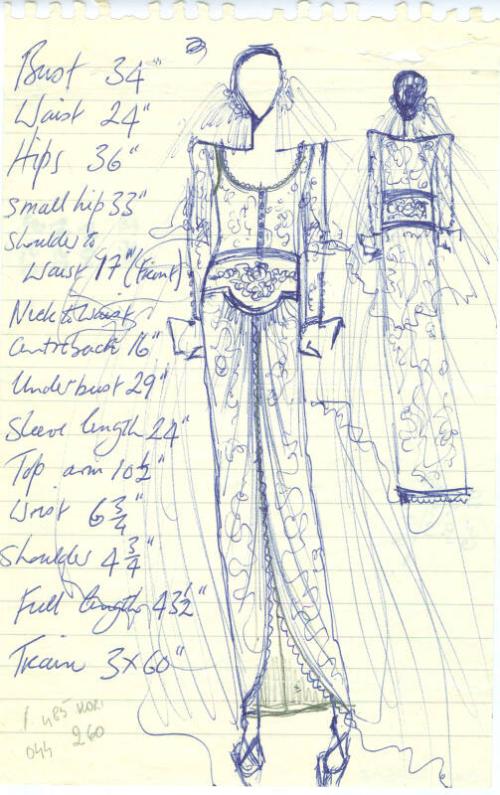 Bust 34"
Waist 24"
Hips 36"
small hip 33"
Shoulder to
Waist 17" (front)
Neck to Waist
Centre back 16"
Underbust 29"
Sleeve length 24"
Top arm 10½"
Wrist 6¾"
Shoulder 4¾"
Full length 43½"
Train 3x60"
485
044 260